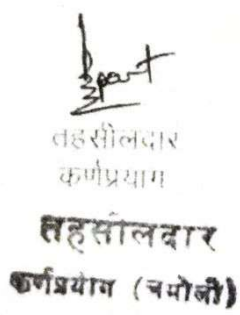 तहसीलदार
कर्णप्रयाग
तहसीलदार
कर्णप्रयाग (चमोली)